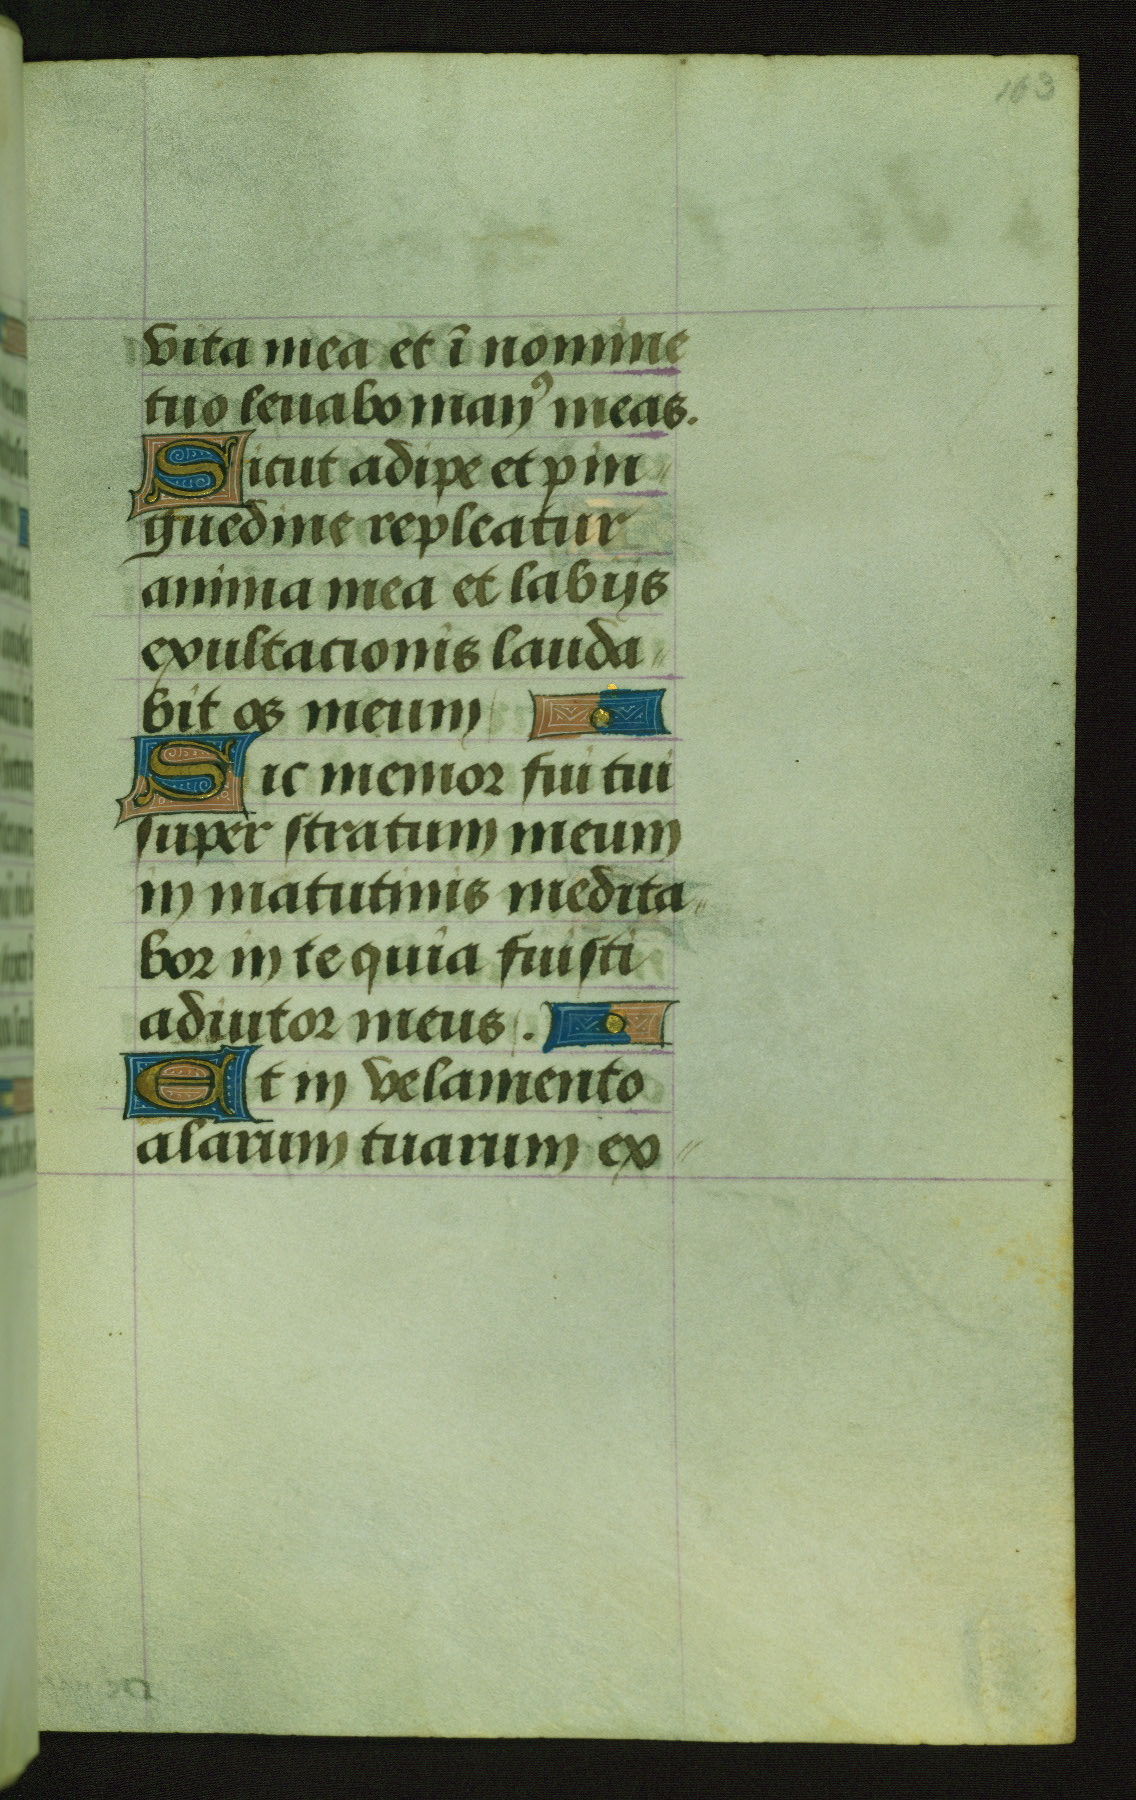 163
vita mea et ī nomine
tuo leuabo manꝰ meas.
Sicut adipe et pin
guedine repleatur
anima mea et labijs
exultacionis lauda
bit os meum
Sic memor fui tui
super stratum meum
in matutinis medita
bor in te quia fuisti
adiutor meus.
Et in velamento
alarum tuarum ex